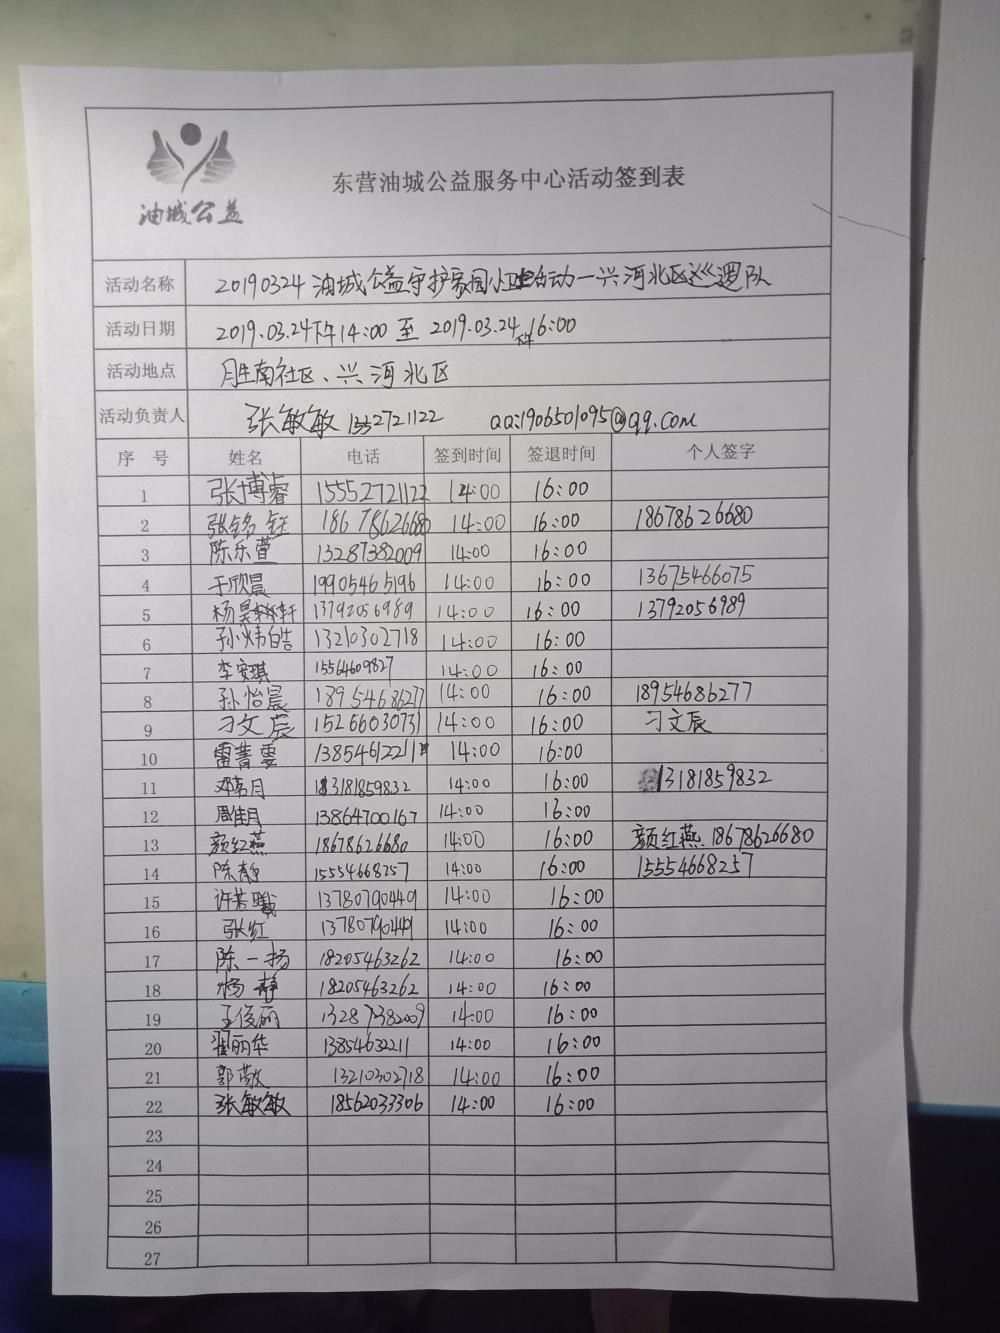 油城公益
东营油城公益服务中心活动签到表
活动名称 20190324油城公益守护家园小卫士活动—兴河北区巡逻队
活动日期 2019.03.24下午14:00至2019.03.24下午16:00
活动地点 胜南社区、兴河北区
活动负责人 张敏敏 QQ:1906501095@qq.com
序号 姓名 电话 签到时间 签退时间 个人签字
1 张博睿 15552721122 14:00 16:00
2 张铭钰 18678626680 14:00 16:00 18678626680
3 陈乐萱 13287382009 14:00 16:00
4 于欣晨 19905465196 14:00 16:00 13675466075
5 杨昊轩 13792056989 14:00 16:00 13792056989
6 孙炜皓 13210302718 14:00 16:00
7 李安琪 15564609827 14:00 16:00
8 孙怡晨 18954686277 14:00 16:00 18954686277
9 刁文辰 15266030731 14:00 16:00 刁文辰
10 雷菁雯 13854612211 14:00 16:00
11 邓茗月 13181859832 14:00 16:00 13181859832
12 周佳月 13864700167 14:00 16:00
13 颜红燕 18678626680 14:00 16:00 颜红燕 18678626680
14 陈静 15554668257 14:00 16:00 15554668257
15 许若曦 13780790449 14:00 16:00
16 张红 13780790449 14:00 16:00
17 陈一扬 18205463262 14:00 16:00
18 杨静 18205463262 14:00 16:00
19 王俊丽 13287382009 14:00 16:00
20 翟丽华 13854632211 14:00 16:00
21 郭敬 13210302718 14:00 16:00
22 张敏敏 18562033306 14:00 16:00
23
24
25
26
27